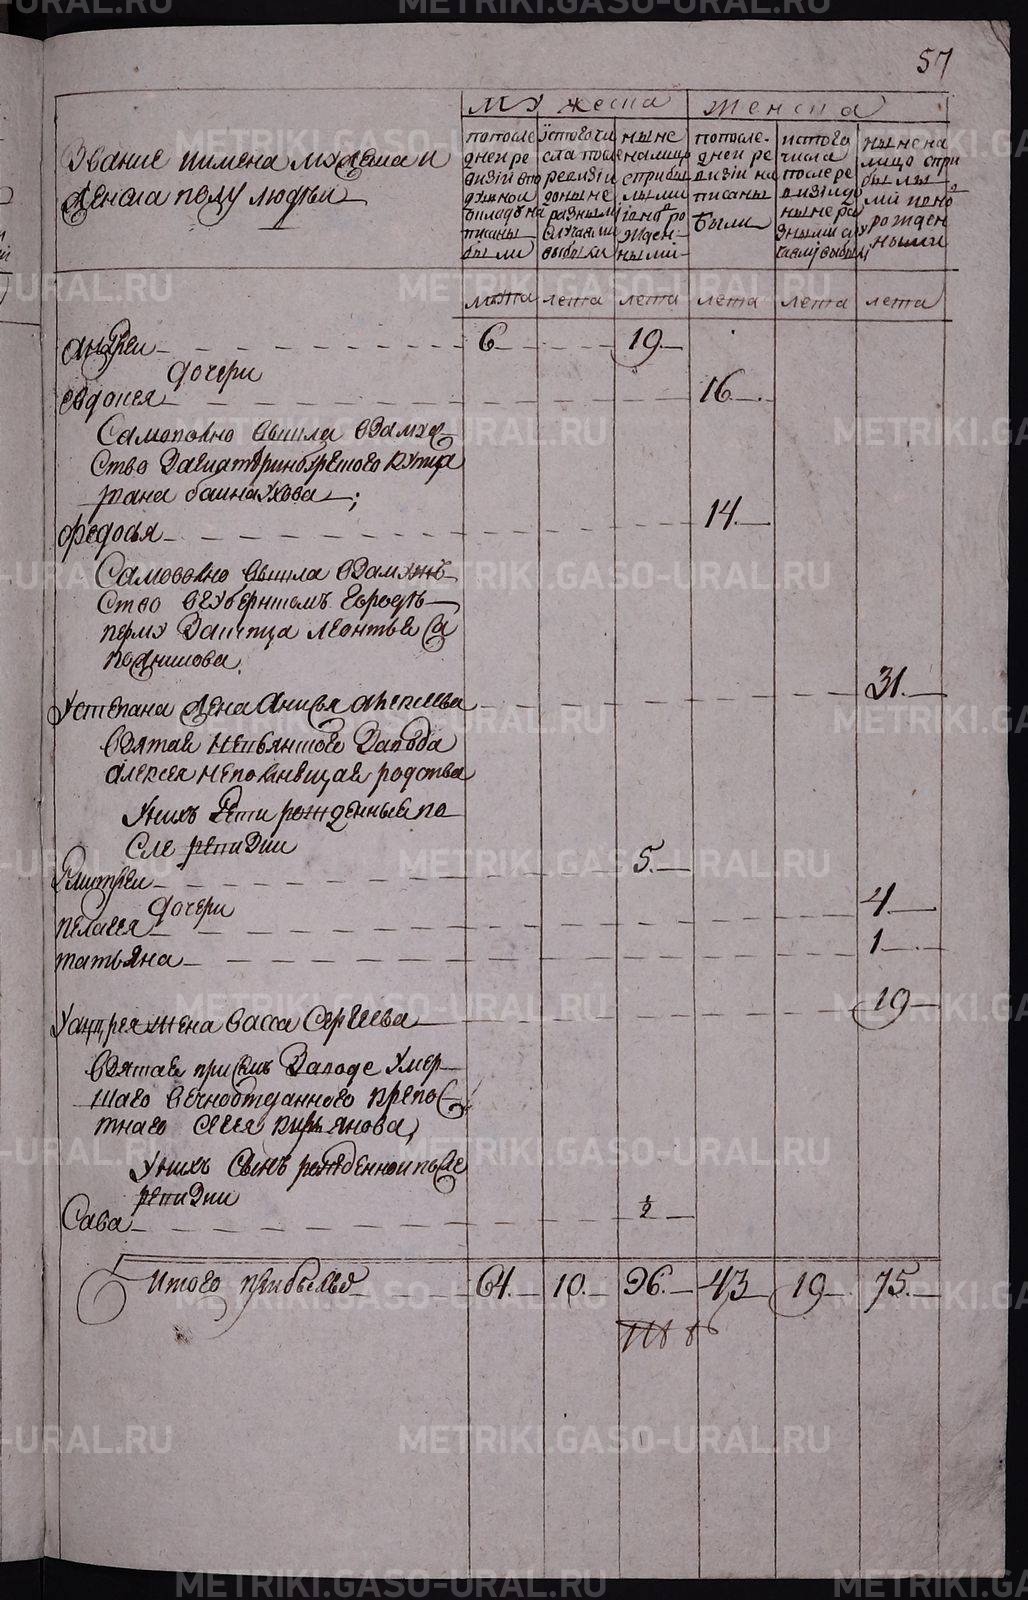 57
мужеска женска
Звание и имена мужеска и
женска полу людьи
по последней ревизии в подушной оклад написаны были
ис того числа после ревизии до ныне разными случаями выбыли
ныне на лицо с прибылыми и новорожденными
по последней ревизии написаны были
ис того числа после ревизии до ныне разными случаями выбыли
ныне на лицо с прибылыми и новорожденными
лета лета лета лета лета лета
андреи 6 19
дочери
евдокея 16
Самоволно вышла взамуж
ство за екатеринбургского купца
ивана баинаухова;
федосья 14
Самоволно вышла взамуж
ство в губернскомъ городе
перму за купца леонтья са
пожникова
у степана жена анисья алексеева 31
взятая невьянского завода
алексея непомнящая родства
у нихъ дети рожденныя по
сле ревизии
дмитреи 5
дочери
пелагея 4
татьяна 1
у андрея жена васса сергеева 19
взятая при семъ заводе умер
шаго вечноотданного крепо
стнаго сергея кирьянова,
у нихъ сынъ рожденной после
ревизии
Сава ½
Итого прибылых 64 10 96 43 19 75
METRIKI.GASO-URAL.RU